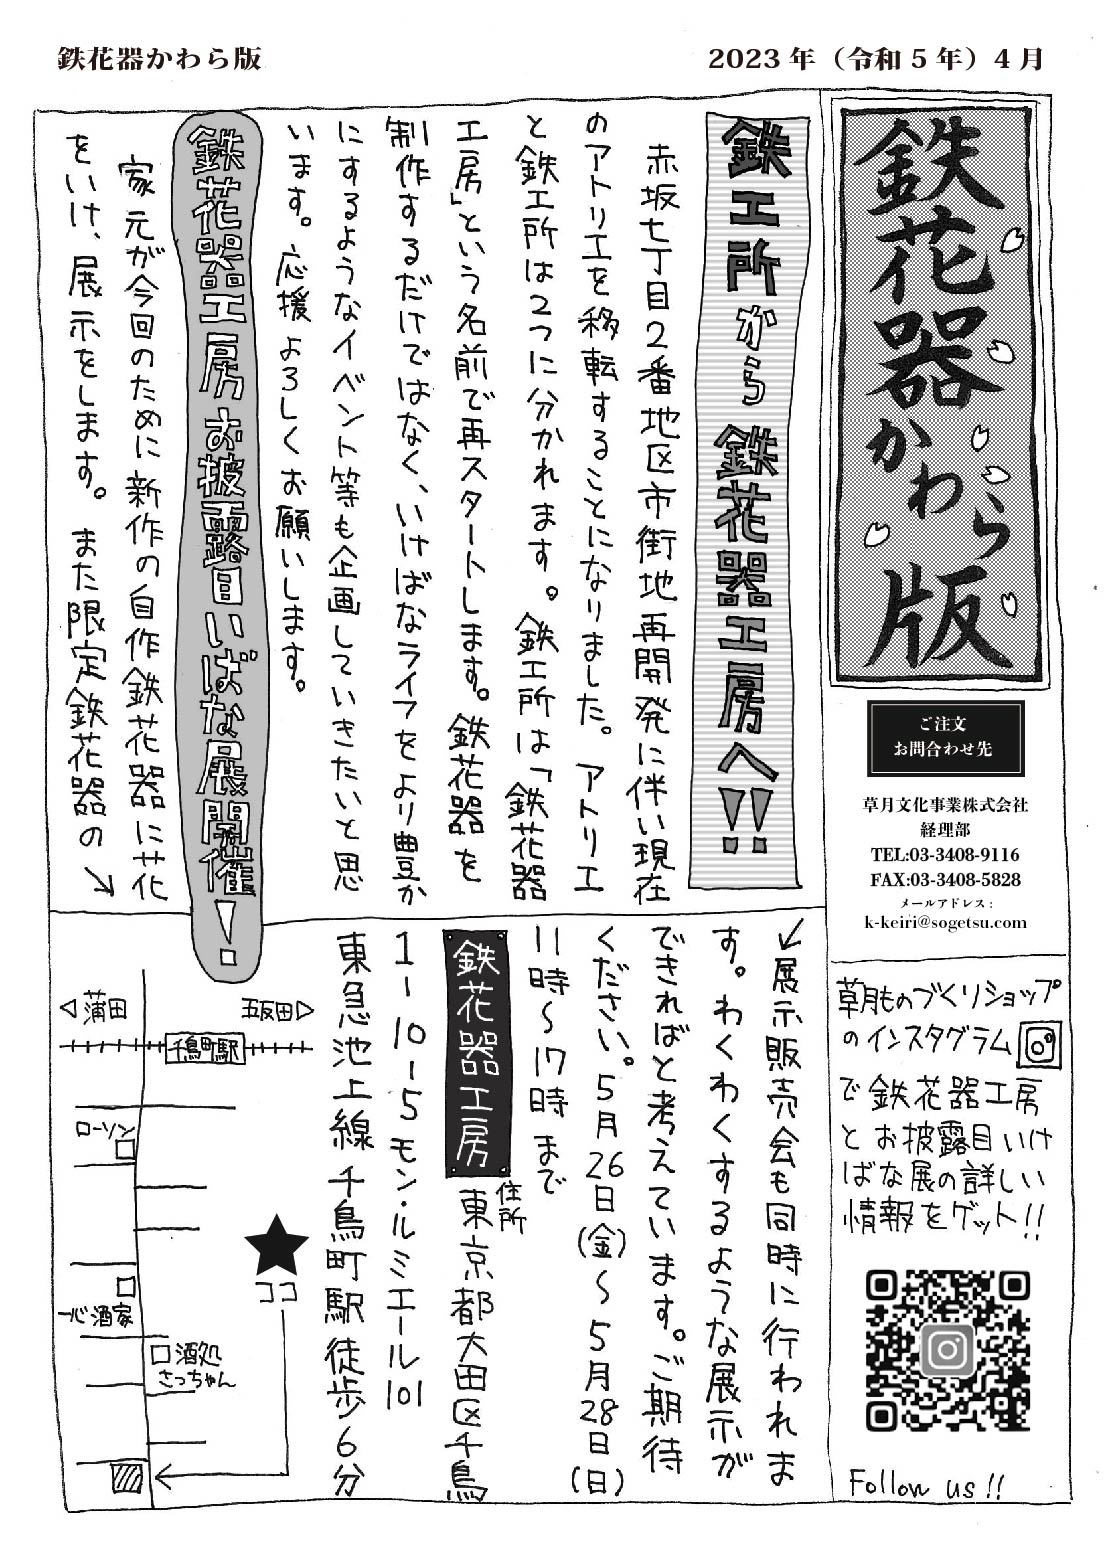 鉄花器かわら版
2023年（令和5年）4月
鉄花器かわら版
ご注文
お問合わせ先
草月文化事業株式会社
経理部
TEL:03-3408-9116
FAX:03-3408-5828
メールアドレス：
k-keiri@sogetsu.com
草月ものづくりショップ
のインスタグラム
で鉄花器工房
とお披露目いけ
ばな展の詳しい
情報をゲット!!
Follow us!!
鉄工所から鉄花器工房へ!!
赤坂七丁目2番地区市街地再開発に伴い現在
のアトリエを移転することになりました。アトリエ
と鉄工所は2つに分かれます。鉄工所は「鉄花器
工房」という名前で再スタートします。鉄花器を
制作するだけではなく、いけばなライフをより豊か
にするようなイベント等も企画していきたいと思
います。応援よろしくお願いします。
鉄花器工房お披露目いばな展開催!
家元が今回のために新作の自作鉄花器に花
をいけ、展示をします。また限定鉄花器の↘
↙展示販売会も同時に行われま
す。わくわくするような展示が
できればと考えています。ご期待
ください。5月26日(金)～5月28日(日)
11時～17時まで
鉄花器工房
住所
東京都大田区千鳥
1-10-5モン・ルミエール101
東急池上線千鳥町駅徒歩6分
◁蒲田
五反田▷
千鳥町駅
ローソン
★
ココ
一心酒家
酒処
さっちゃん